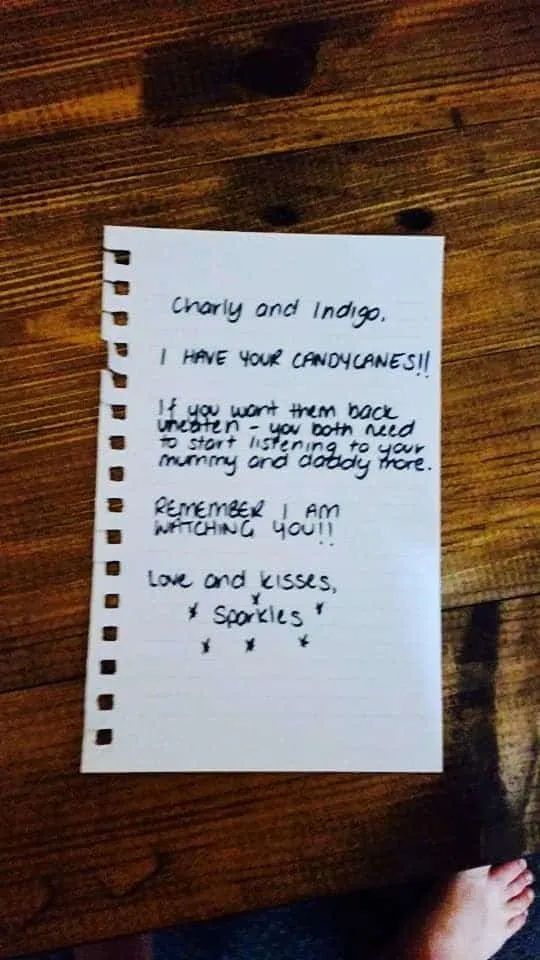 Charly and Indigo,
I HAVE YOUR CANDYCANES!!
If you want them back
uneaten - you both need
to start listening to your
mummy and daddy more.
REMEMBER I AM
WATCHING YOU!!
Love and kisses,
Sparkles